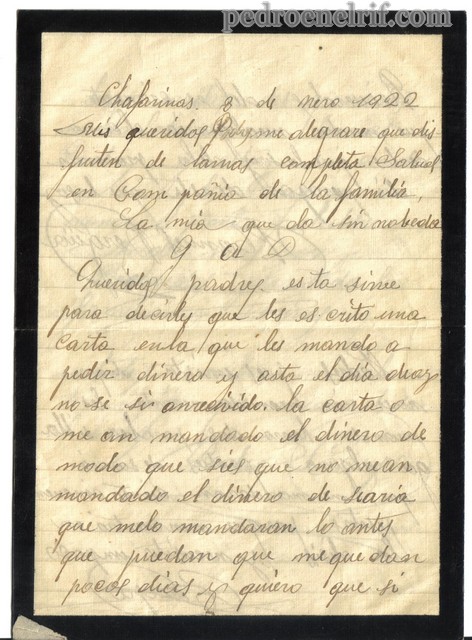 pedroenelrif.com
Chafarinas 8 de nero 1922
Mis queridos Padres me alegrare que dis
fruten de lamas completa Salud
en Compañia de la familia,
La mia que da sin nobeda
G a D
Queridos padres esta sirve
para decirles que les es crito una
carta enla que les mando a
pedir dinero y asta el dia de oy
no se si anrecivido la carta o
me an mandado el dinero de
modo que sies que no mean
mandado el dinero de searia
que melo mandaran lo antes
que puedan que me quedan
pocos dias y quiero que si